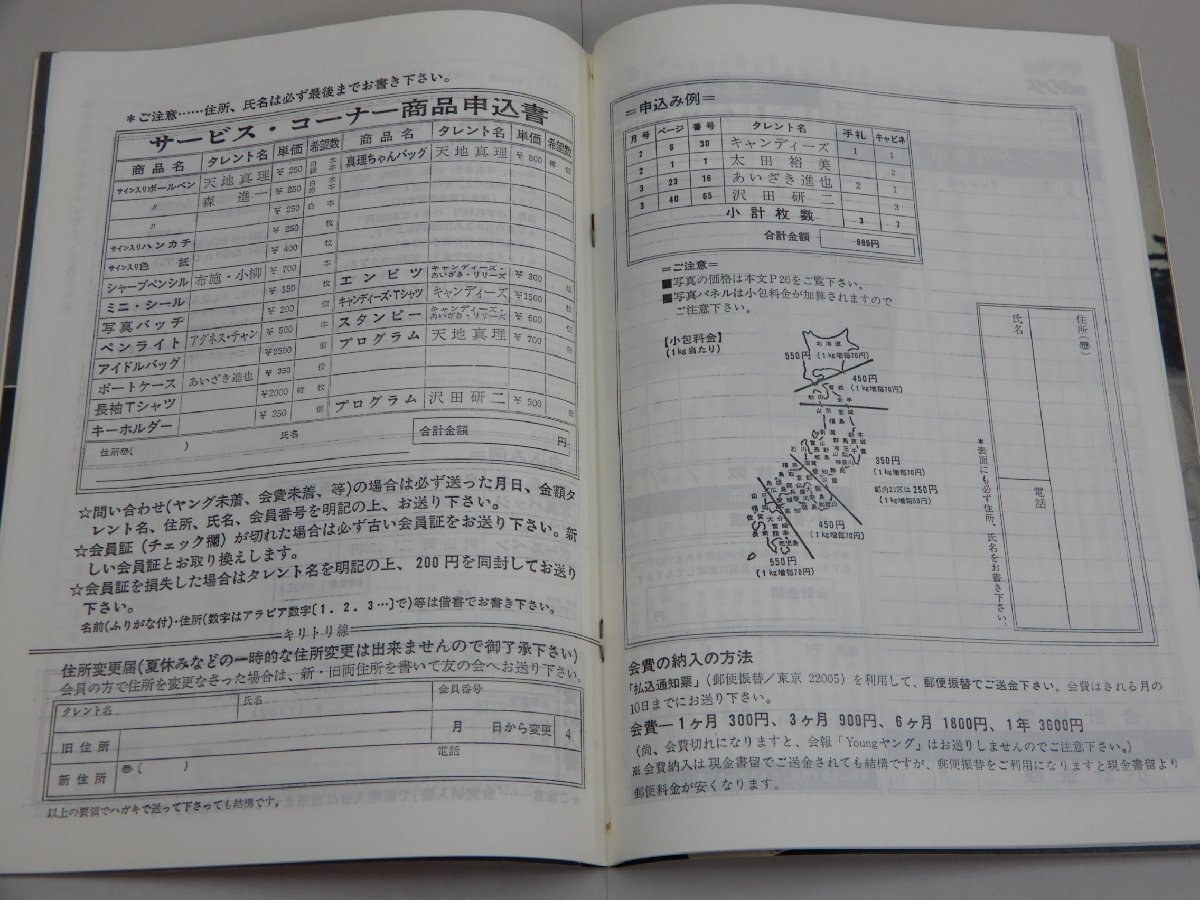 ＊ご注意……住所、氏名は必ず最後までお書き下さい。
サービス・コーナー商品申込書
商品名 タレント名 単価 希望数 商品名 タレント名 単価 希望数
サイン入りボールペン 天地真理 ¥250 真理ちゃんバッグ 天地真理 ¥800
〃 森進一 ¥250
〃 ¥250 白 本
サイン入りハンカチ ¥250 枚
サイン入り色紙 ¥400 枚
シャープペンシル 布施・小柳 ¥700 本 エンピツ キャンディーズ・あいざき・リリーズ ¥300
ミニ・シール ¥150 枚 キャンディーズ・Tシャツ キャンディーズ ¥1500 枚
写真バッチ ¥200 スタンピー キャンディーズ・あいざき・リリーズ ¥600 個
ペンライト アグネス・チャン ¥500 本 プログラム 天地真理 ¥700
アイドルバッグ ¥2500 個
ポートケース あいざき進也 ¥350
長袖Tシャツ ¥2000 枚
キーホルダー ¥350 個 プログラム 沢田研二 ¥500
住所〠( ) 氏名 合計金額 円
☆問い合わせ(ヤング未着、会費未着、等)の場合は必ず送った月日、金額タ
レント名、住所、氏名、会員番号を明記の上、お送り下さい。
☆会員証(チェック欄)が切れた場合は必ず古い会員証をお送り下さい。新
しい会員証とお取り換えします。
☆会員証を損失した場合はタレント名を明記の上、200円を同封してお送り
下さい。
名前(ふりがな付)・住所(数字はアラビア数字〔1．2．3…〕で)等は楷書でお書き下さい。
キリトリ線
住所変更届(夏休みなどの一時的な住所変更は出来ませんので御了承下さい)
会員の方で住所を変更なさった場合は、新・旧両住所を書いて友の会へお送り下さい。
タレント名 氏名 会員番号
月 日から変更 4
旧住所 電話
新住所 〠( )
以上の要領でハガキで送って下さっても結構です。
＝申込み例＝
月号 ページ 番号 タレント名 手札 キャビネ
2 8 30 キャンディーズ 1 1
2 1 1 太田裕美 2
3 23 16 あいざき進也 2 1
3 40 65 沢田研二 3
小計枚数 3 7
合計金額 880円
＝ご注意＝
■写真の価格は本文P26をご覧下さい。
■写真パネルは小包料金が加算されますので
ご注意下さい。
【小包料金】
(1kg当たり)
北海道
550円(1kg増毎70円)
450円
(1kg増毎70円)
青森
秋田 岩手
山形 宮城
福島
350円
(1kg増毎70円)
都内23区は250円
(1kg増毎50円)
450円
(1kg増毎70円)
550円
(1kg増毎70円)
住所(〠)
氏名
電話
＊表面にも必ず住所、氏名をお書き下さい。
会費の納入の方法
「払込通知票」(郵便振替／東京 22005)を利用して、郵便振替でご送金下さい。会費はきれる月の
10日までにお送り下さい。
会費―1ヶ月 300円、3ヶ月 900円、6ヶ月 1800円、1年 3600円
(尚、会費切れになりますと、会報「Youngヤング」はお送りしませんのでご注意下さい。)
※会費納入は現金書留でご送金されても結構ですが、郵便振替をご利用になりますと現金書留より
郵便料金が安くなります。